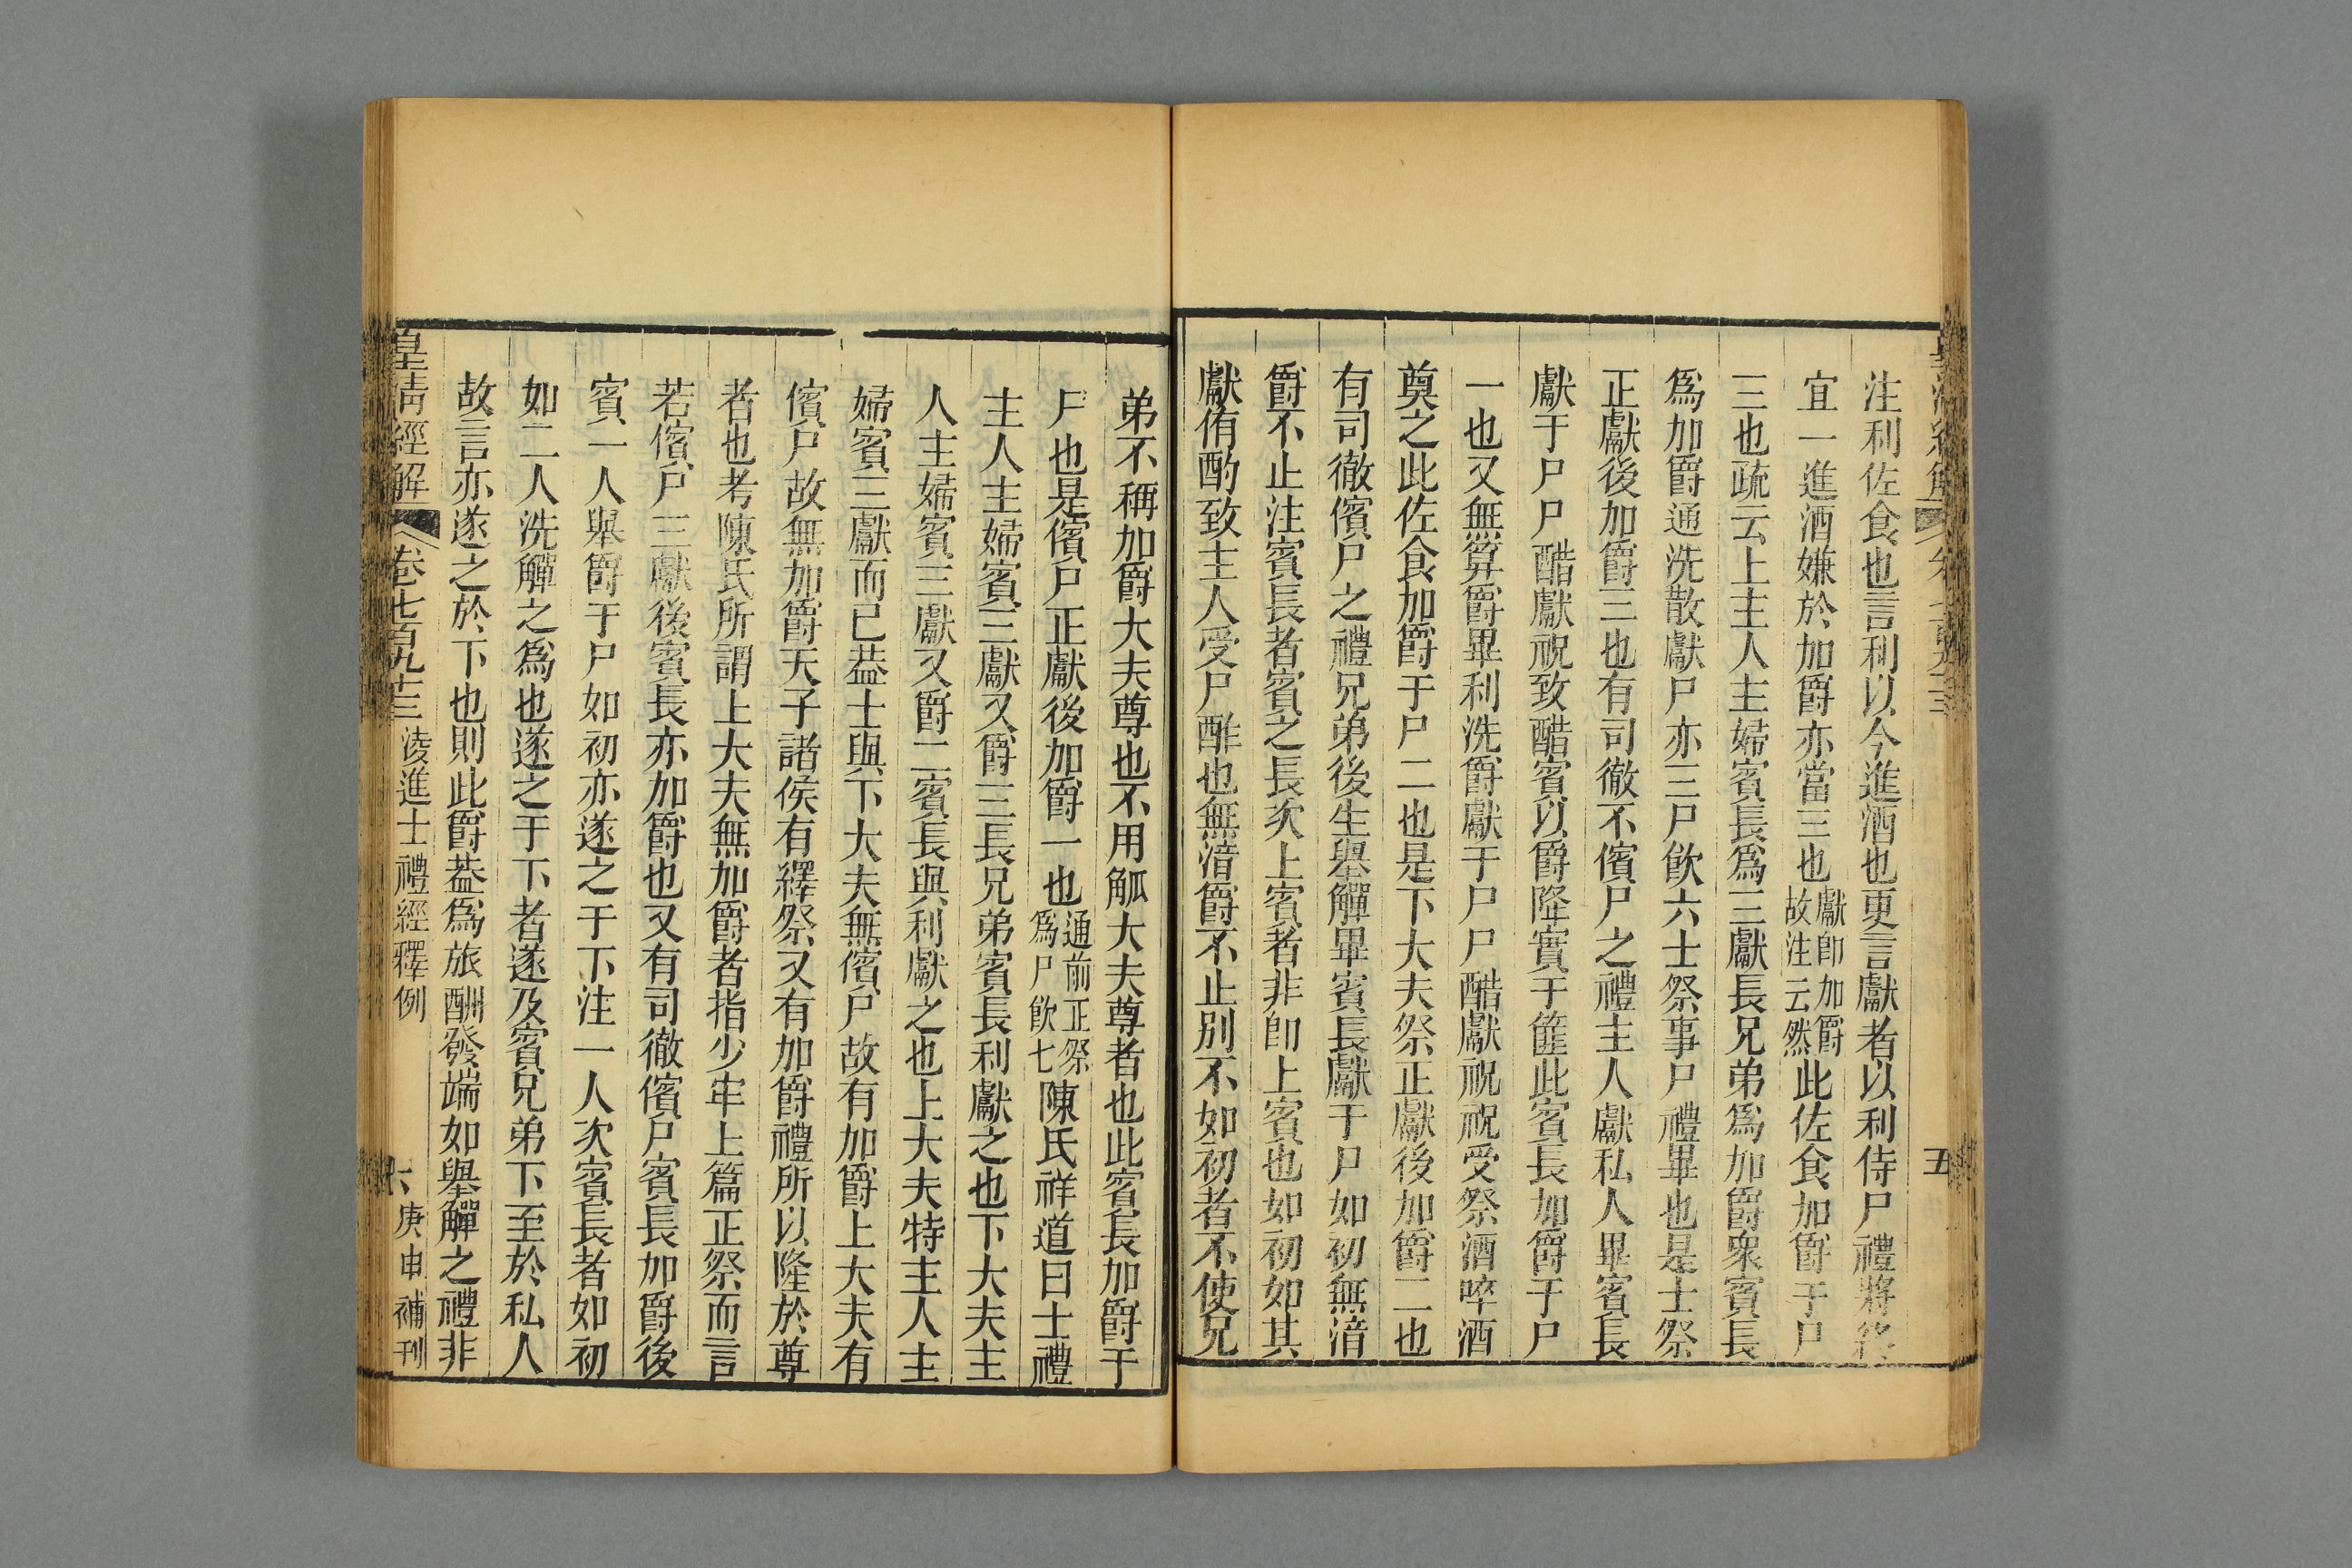 五
注利佐食也言利以今進酒也更言獻者以利侍尸禮將終
宜一進酒嫌於加爵亦當三也獻卽加爵故注云然此佐食加爵于尸
三也疏云上主人主婦賓長爲三獻長兄弟爲加爵衆賓長
爲加爵通洗散獻尸亦三尸飮六士祭事尸禮畢也是士祭
正獻後加爵三也有司徹不儐尸之禮主人獻私人畢賓長
獻于尸尸醋獻祝致醋賓以爵降實于篚此賓長加爵于尸
一也又無算爵畢利洗爵獻于尸尸醋獻祝祝受祭酒啐酒
奠之此佐食加爵于尸二也是下大夫祭正獻後加爵二也
有司徹儐尸之禮兄弟後生舉觶畢賓長獻于尸如初無湆
爵不止注賓長者賓之長次上賓者非卽上賓也如初如其
獻侑酌致主人受尸酢也無湆爵不止別不如初者不使兄
弟不稱加爵大夫尊也不用觚大夫尊者也此賓長加爵于
尸也是儐尸正獻後加爵一也通前正祭爲尸飮七陳氏祥道曰士禮
主人主婦賓三獻又爵三長兄弟賓長利獻之也下大夫主
人主婦賓三獻又爵二賓長與利獻之也上大夫特主人主
婦賓三獻而已葢士與下大夫無儐尸故有加爵上大夫有
儐尸故無加爵天子諸侯有繹祭又有加爵禮所以隆於尊
者也考陳氏所謂上大夫無加爵者指少牢上篇正祭而言
若儐尸三獻後賓長亦加爵也又有司徹儐尸賓長加爵後
賓一人舉爵于尸如初亦遂之于下注一人次賓長者如初
如二人洗觶之爲也遂之于下者遂及賓兄弟下至於私人
故言亦遂之於下也則此爵葢爲旅酬發端如舉觶之禮非
皇清經解 卷七百九十三 淩進士禮經釋例 六 庚申補刊